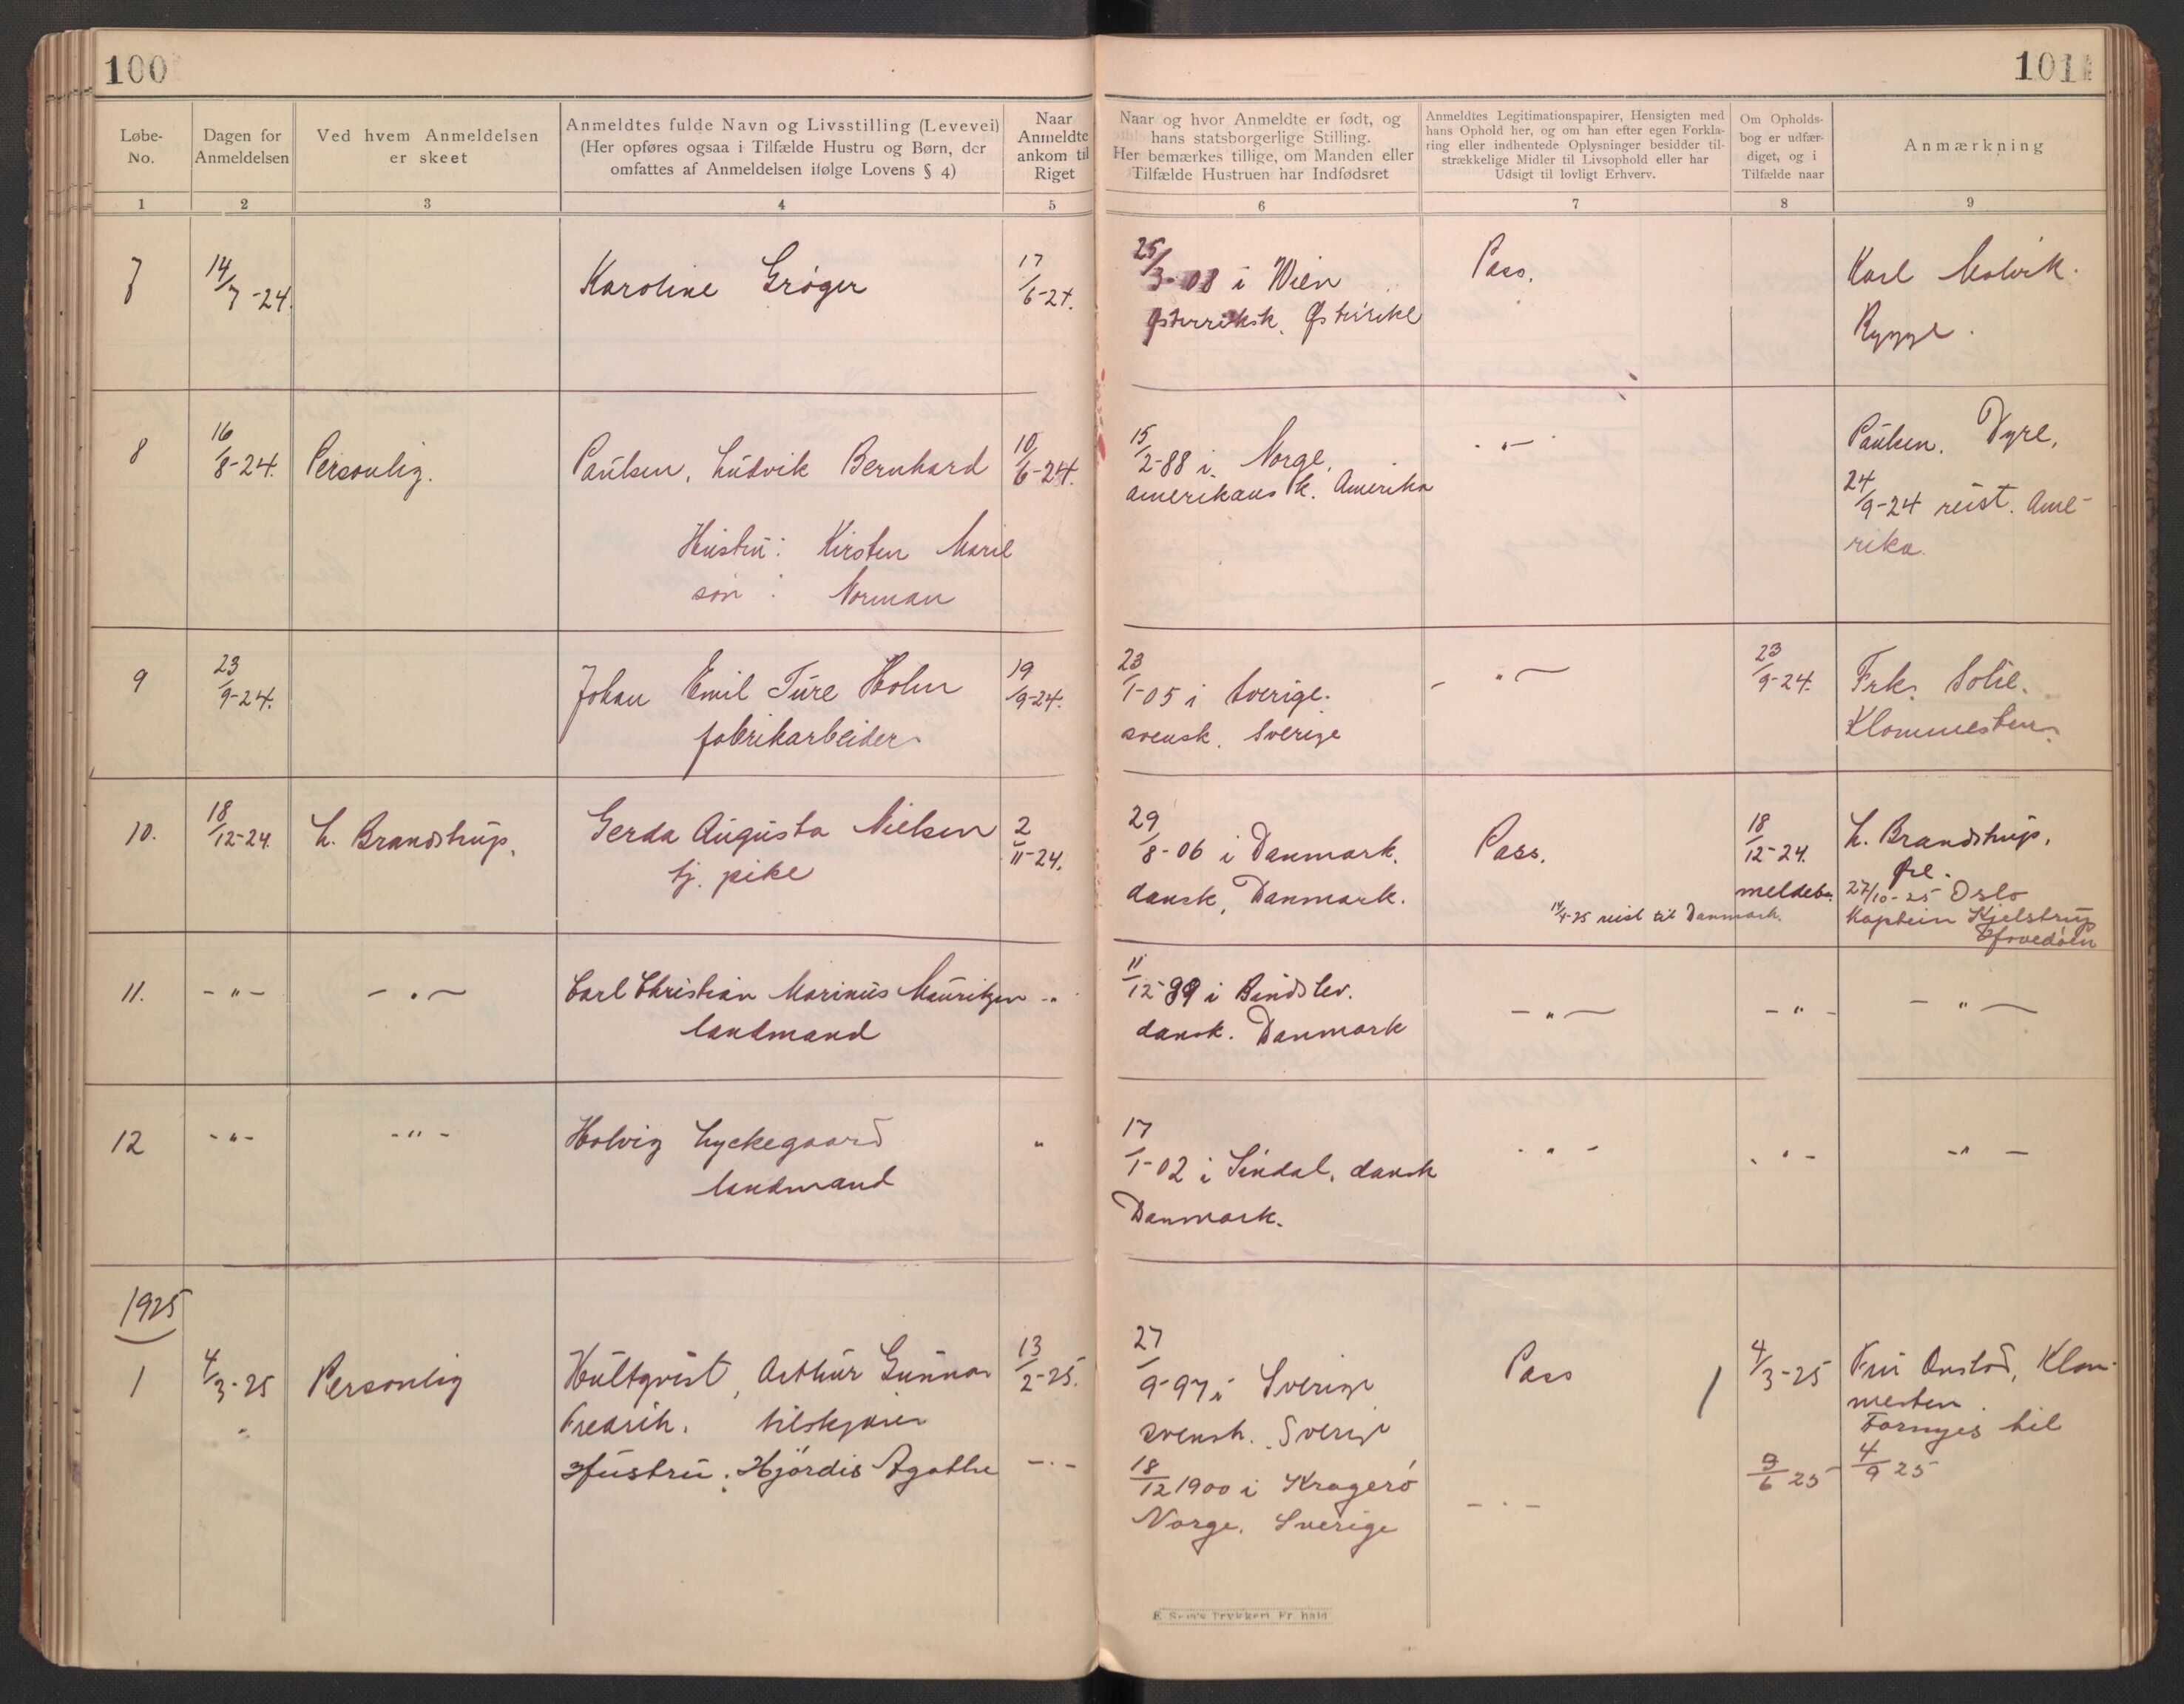 100
101
Løbe-
No.
Dagen for
Anmeldelsen
Ved hvem Anmeldelsen
er skeet
Anmeldtes fulde Navn og Livsstilling (Levevei)
(Her opføres ogsaa i Tilfælde Hustru og Børn, der
omfattes af Anmeldelsen ifølge Lovens § 4)
Naar
Anmeldte
ankom til
Riget
Naar og hvor Anmeldte er født, og
hans statsborgerlige Stilling.
Her bemærkes tillige, om Manden eller
Tilfælde Hustruen har Indfødsret
Anmeldtes Legitimationspapirer, Hensigten med
hans Ophold her, og om han efter egen Forkla-
ring eller indhentede Oplysninger besidder til-
strækkelige Midler til Livsophold eller har
Udsigt til lovligt Erhverv.
Om Opholds-
bog er udfær-
diget, og i
Tilfælde naar
Anmærkning
1 2 3 4 5 6 7 8 9
7
14/7-24.
Karoline Grøger
17/6-24.
25/3-08 i Wien
østerriksk. Østerrike
Pass.
Karl Molvik.
Rygge.
8
16/8-24.
Personlig.
Paulsen, Ludvik Bernhard
Hustru: Kirsten Marie
søn: Norman
10/6-24.
15/2-88 i Norge,
amerikansk. Amerika
- " -
Paulsen. Dyre,
24/9-24 reist. Ame-
rika.
9
23/9-24.
Johan Emil Ture Holm
fabrikarbeider.
19/9-24.
23/1-05 i Sverige.
svensk. Sverige
- " -
23/9-24.
Frk. Solie.
Klommesten.
10.
18/12-24.
L. Brandstrup.
Gerda Augusta Nielsen
tj. pike
2/11-24.
29/8-06 i Danmark.
dansk, Danmark.
Pass.
14/4-25 reist til Danmark.
18/12-24.
meldeb.
L. Brandstrup,
Øre.
27/10-25 Oslo
Kaptein Kjelstrup
Hovedøen
11.
- " -
- " -
Carl Christian Marinus Mauritzen
landmand
- "
11/12-99 i Bindslev.
dansk. Danmark
- " -
- " -
- " -
12
- " -
- " -
Holvig Lyckegaard
landmand
"
17/1-02 i Sindal, dansk
Danmark.
- " -
- " -
- " -
1925
1
4/3-25
"
Personlig
Hultqvist, Arthur Gunnar
Fredrik. tilskjærer
Hustru: Hjørdis Agathe
13/2-25.
- " -
27/9-97 i Sverige
svensk. Sverige
18/12 1900 i Kragerø
Norge. Sverige
Pass
- " -
4/3-25
9/6 25
Fru Onstad, Klom-
mesten.
Fornyes til
4/9 25
E. Sem's Trykkeri Fr.hald